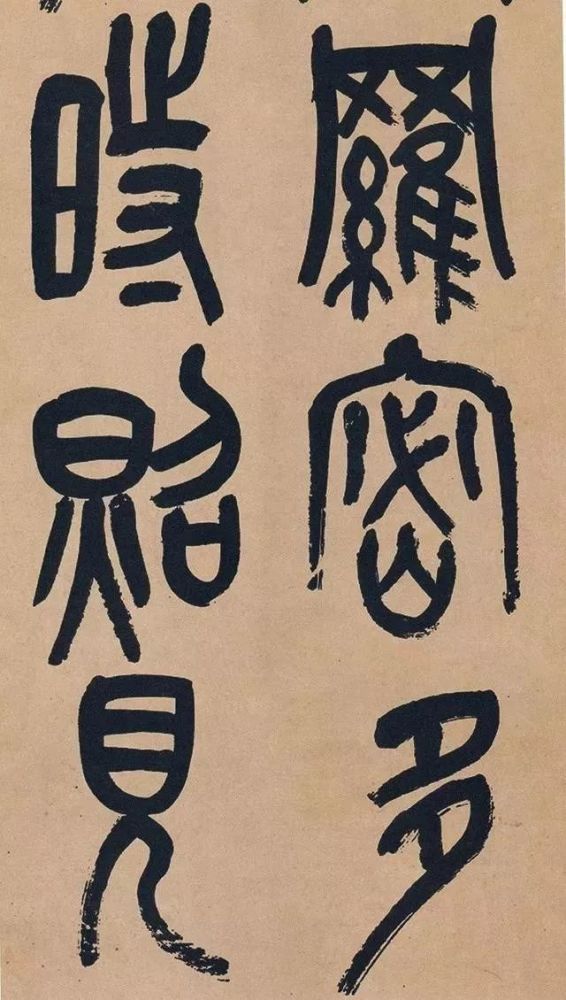 羅密多
時照見